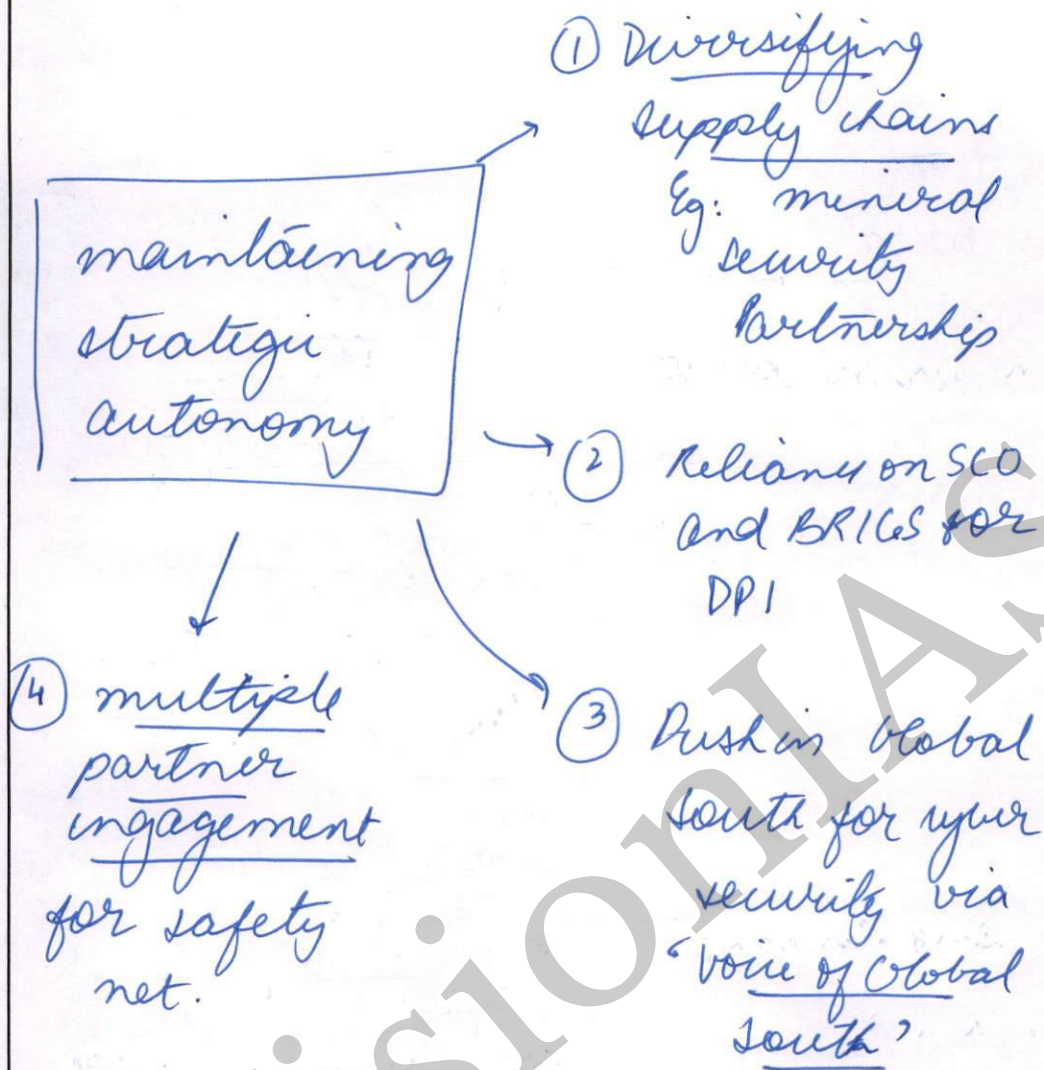 maintaining
strategic
autonomy
① Diversifying
supply chains
Eg: mineral
security
Partnership
② Reliance on SCO
and BRICS for
DPI
③ Push in Global
South for cyber
security via
'Voice of Global
South'
④ multiple
partner
engagement
for safety
net.
VisionIAS